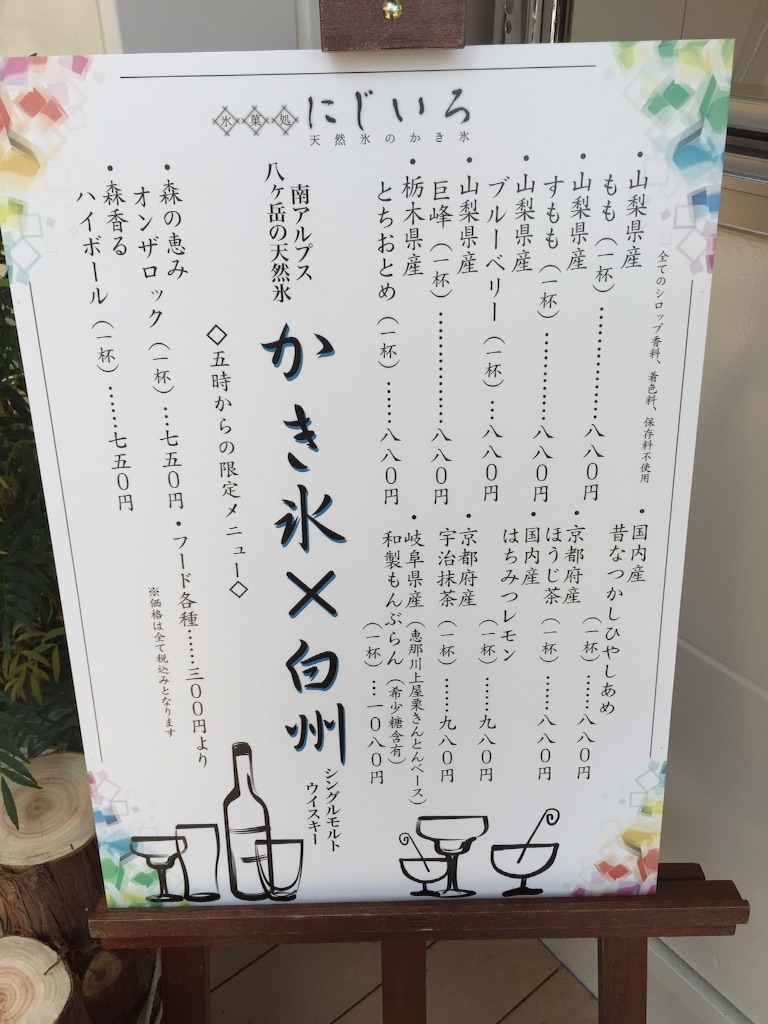 氷菓処
にじいろ
天然氷のかき氷
全てのシロップ香料、着色料、保存料不使用
・山梨県産
もも(一杯)…………八八〇円
・山梨県産
すもも(一杯)…………八八〇円
・山梨県産
ブルーベリー(一杯)……八八〇円
・山梨県産
巨峰(一杯)…………八八〇円
・栃木県産
とちおとめ(一杯)……八八〇円
・国内産
昔なつかしひやしあめ
(一杯)……八八〇円
・京都府産
ほうじ茶
(一杯)……八八〇円
・国内産
はちみつレモン
(一杯)……九八〇円
・京都府産
宇治抹茶(一杯)……九八〇円
・岐阜県産(恵那川上屋栗きんとんベース)
和製もんぶらん(希少糖含有)
(一杯)…一〇八〇円
南アルプス
八ヶ岳の天然氷
かき氷×白州
シングルモルト
ウイスキー
◇五時からの限定メニュー◇
・森の恵み
オンザロック(一杯)……七五〇円
・森香る
ハイボール(一杯)……七五〇円
・フード各種……三〇〇円より
※価格は全て税込みとなります